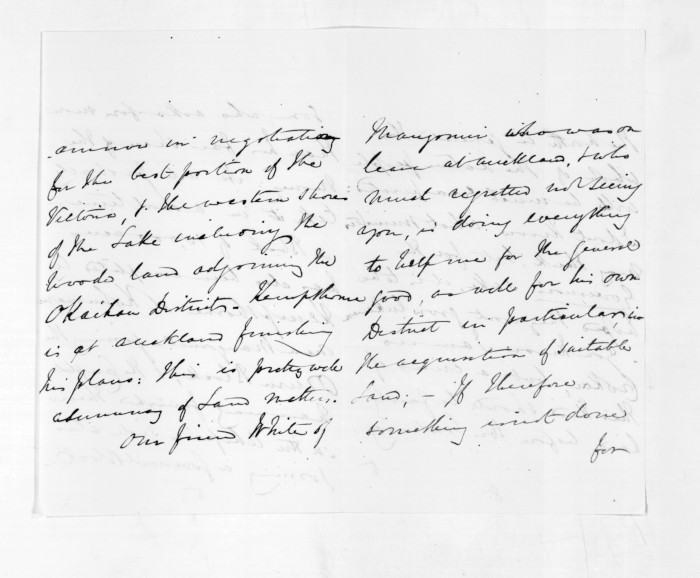 in negotiating
for the best portion of the
Victoria, & the western shores
of the Lake the
Woods land adjoining the
Okaihau Districts - Kempthorne
is at Auckland finishing
his plans: This is pretty well
a summary of Land matters.
Our friend White of
Mangonui who was on
leave at Auckland, & who
much regretted not seeing
you, is doing everything
to help me for the general
good, as well for his own
District in particular, in
the acquisition of suitable
Land; - If therefore
something isn't done
for